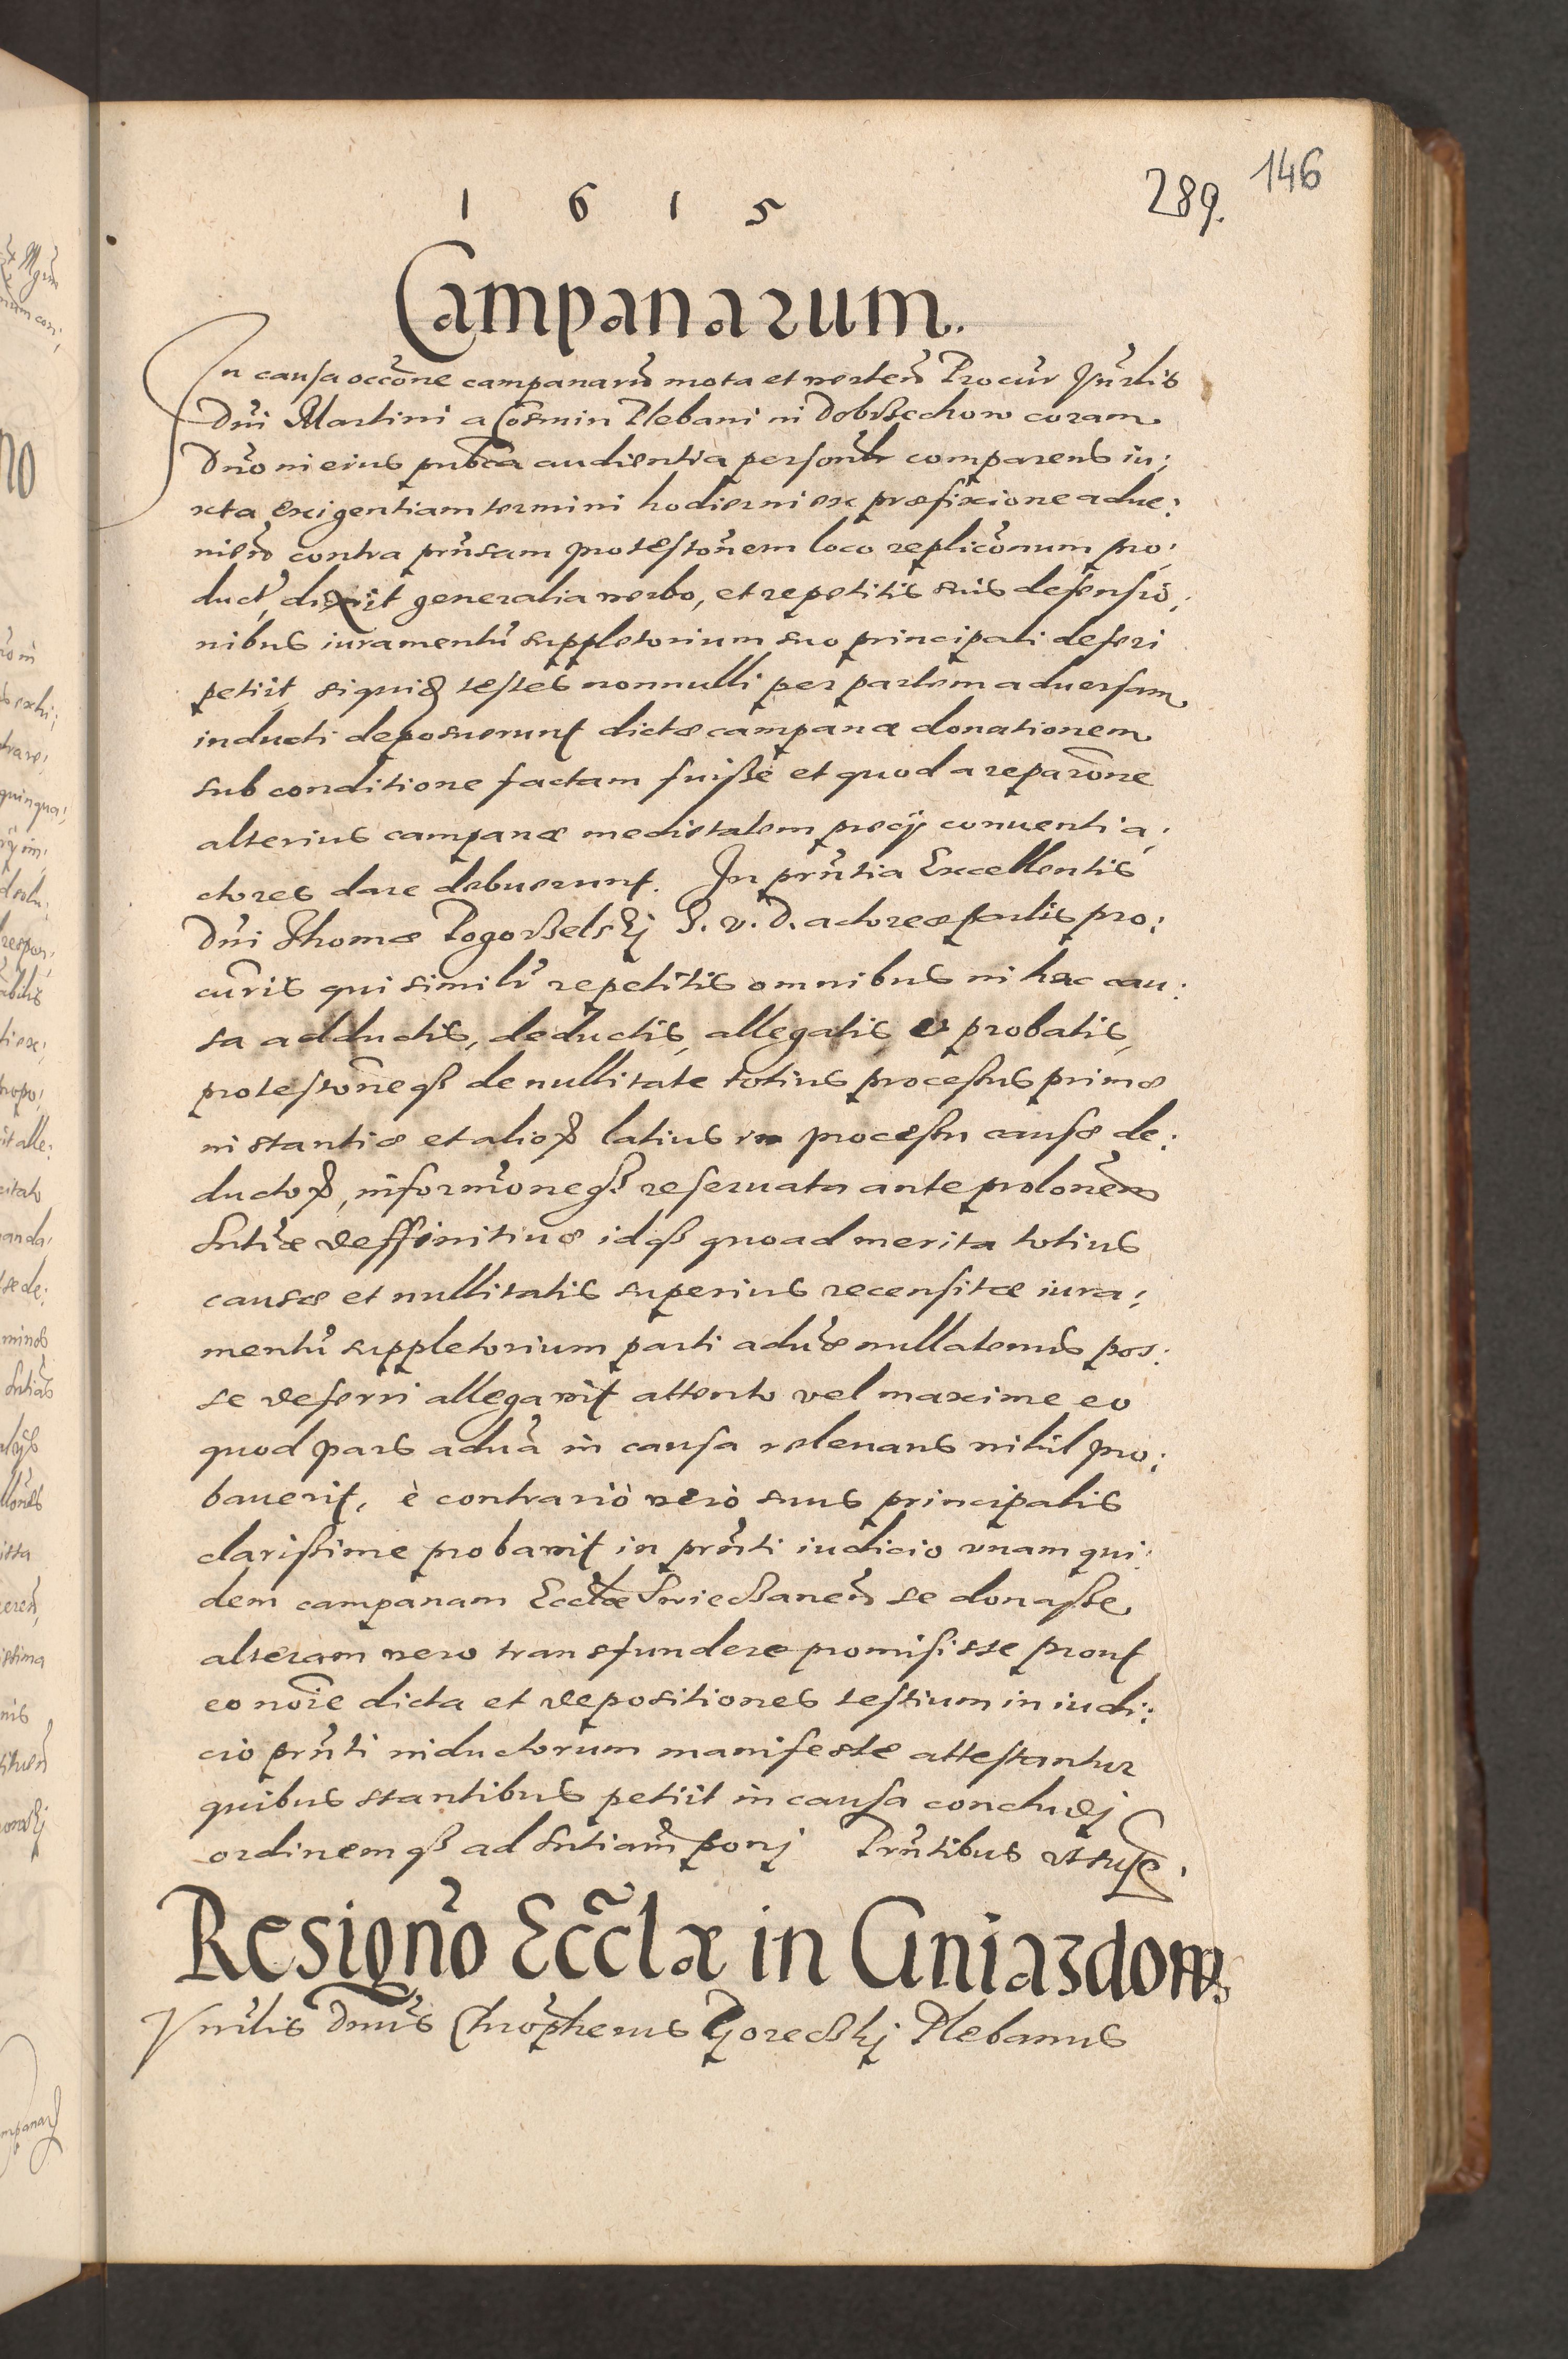 146
289.
1 6 1 5
Campanarum.
In causa occõne campanarũ mota et vorteñ Procur̃ Vñrlis
Dñi Martini a Cosmin Plebani in Dobrzechow coram
Dño in eius publca audientia personlr comparens iu:
xta exigentiam termini hodierni ex praefixione adue:
nieñ contra prñsam protestõnem loco replicõnum pro:
duct̃, dixit generalia verbo, et repetitis suis defensio:
nibus iuramentũ suppletorium suo principali deferi
petiit, siquid testes nonnulli per partem aduersam
inducti deposuerunt dictae campanae donationem
sub conditione factam fuisse et quod a reparõne
alterius campanae medietatem precij conuenti a:
ctores dare debuerunt. In prñtia Excellentis
Dñi Thomae Pogorzelskj I. v. D. actoreae partis pro:
curis qui similr̃ repetitis omnibus in hac cau:
sa adductis, deductis, allegatis et probatis,
protestõneqз de nullitate totius processus primae
instantiae et alioꝝ latius in processu causae de:
ductoꝝ, informõneqз reseruata ante prolonem
sntiae deffinitiuae idqз quoad merita totius
causae et nullitatis superius recensitae iura:
mentũ suppletorium parti adũae nullatenus pos:
se deferri allegavit attento vel maxime eo
quod pars adũa in causa relevans nihil pro:
bauerit, è contrariò verò suus principalis
clarissime probavit in prñti iudicio vnam qui:
dem campanam Eccłae Swieczaneñ se donasse
alteram vero transfundere promisisse prout
eo noĩe dicta et depositiones testium in iudi:
cio prñti inductorum manifeste attestantur
quibus stantibus petiit in causa concludj
ordinemqз ad sntiam ponj Prñtibus vt supra.
Resignõ Ecclae in Gniazdow
Vnrlis Dnũs Chrophorus Goreczkj Plebanus